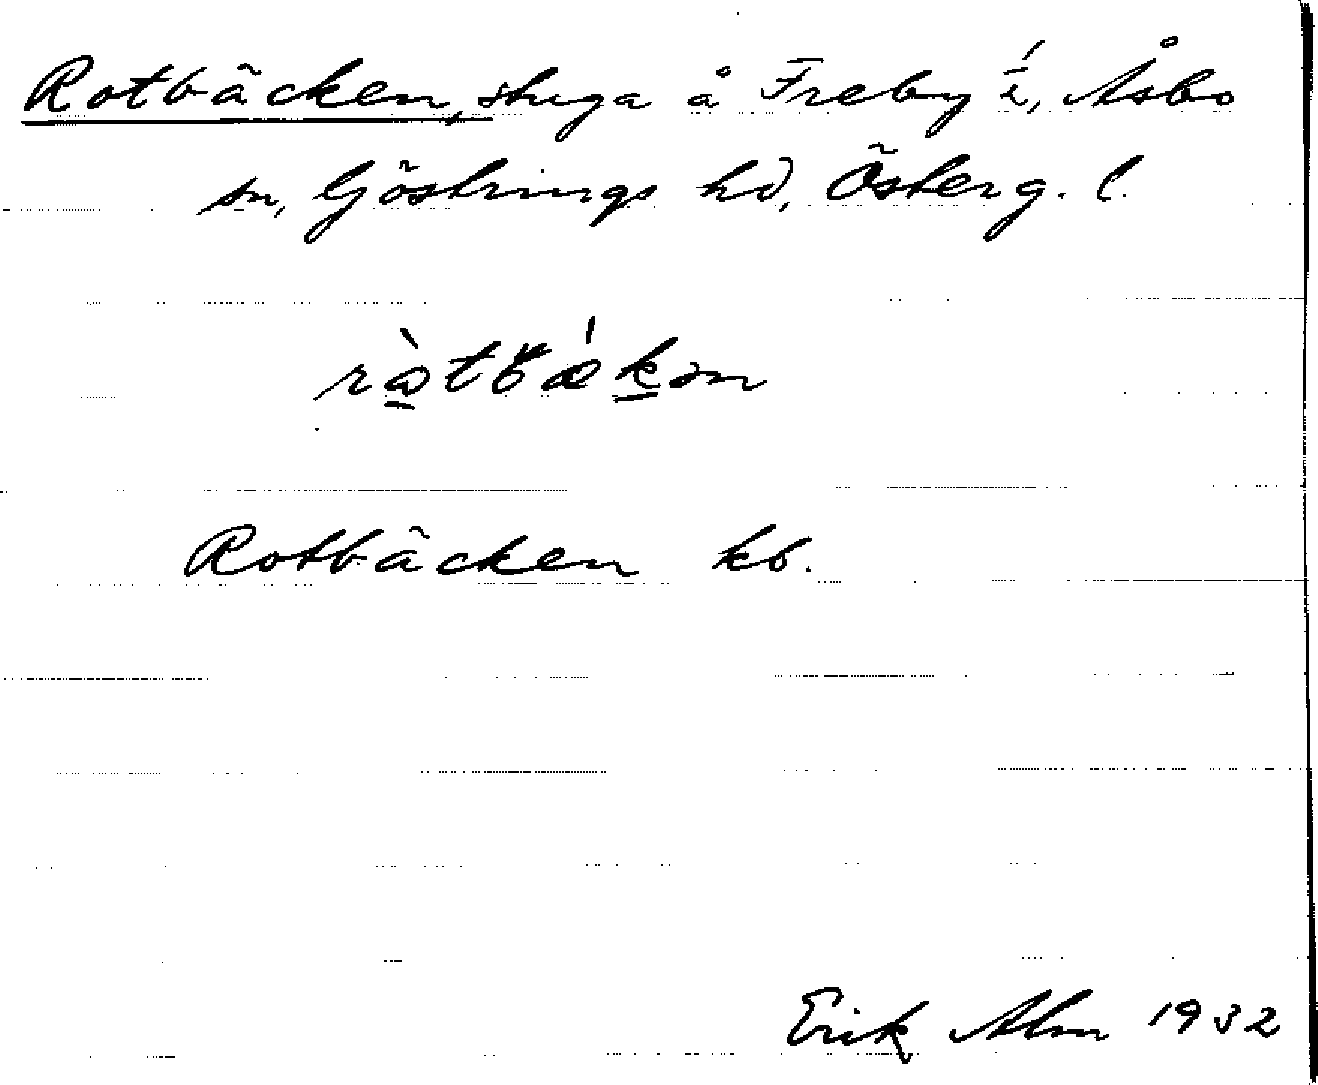 Rotbäcken, stuga å Freby 1/2, Åsbo
sn, Göstrings hd, Österg. l.
Rotbäcken kb.
Erik Alm 1932